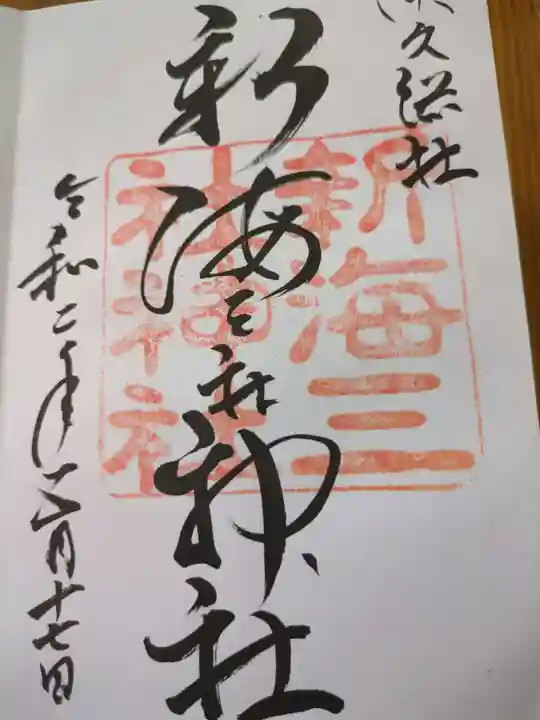 佐久総社
新海三社神社
令和二年六月十七日
新海三
社神社